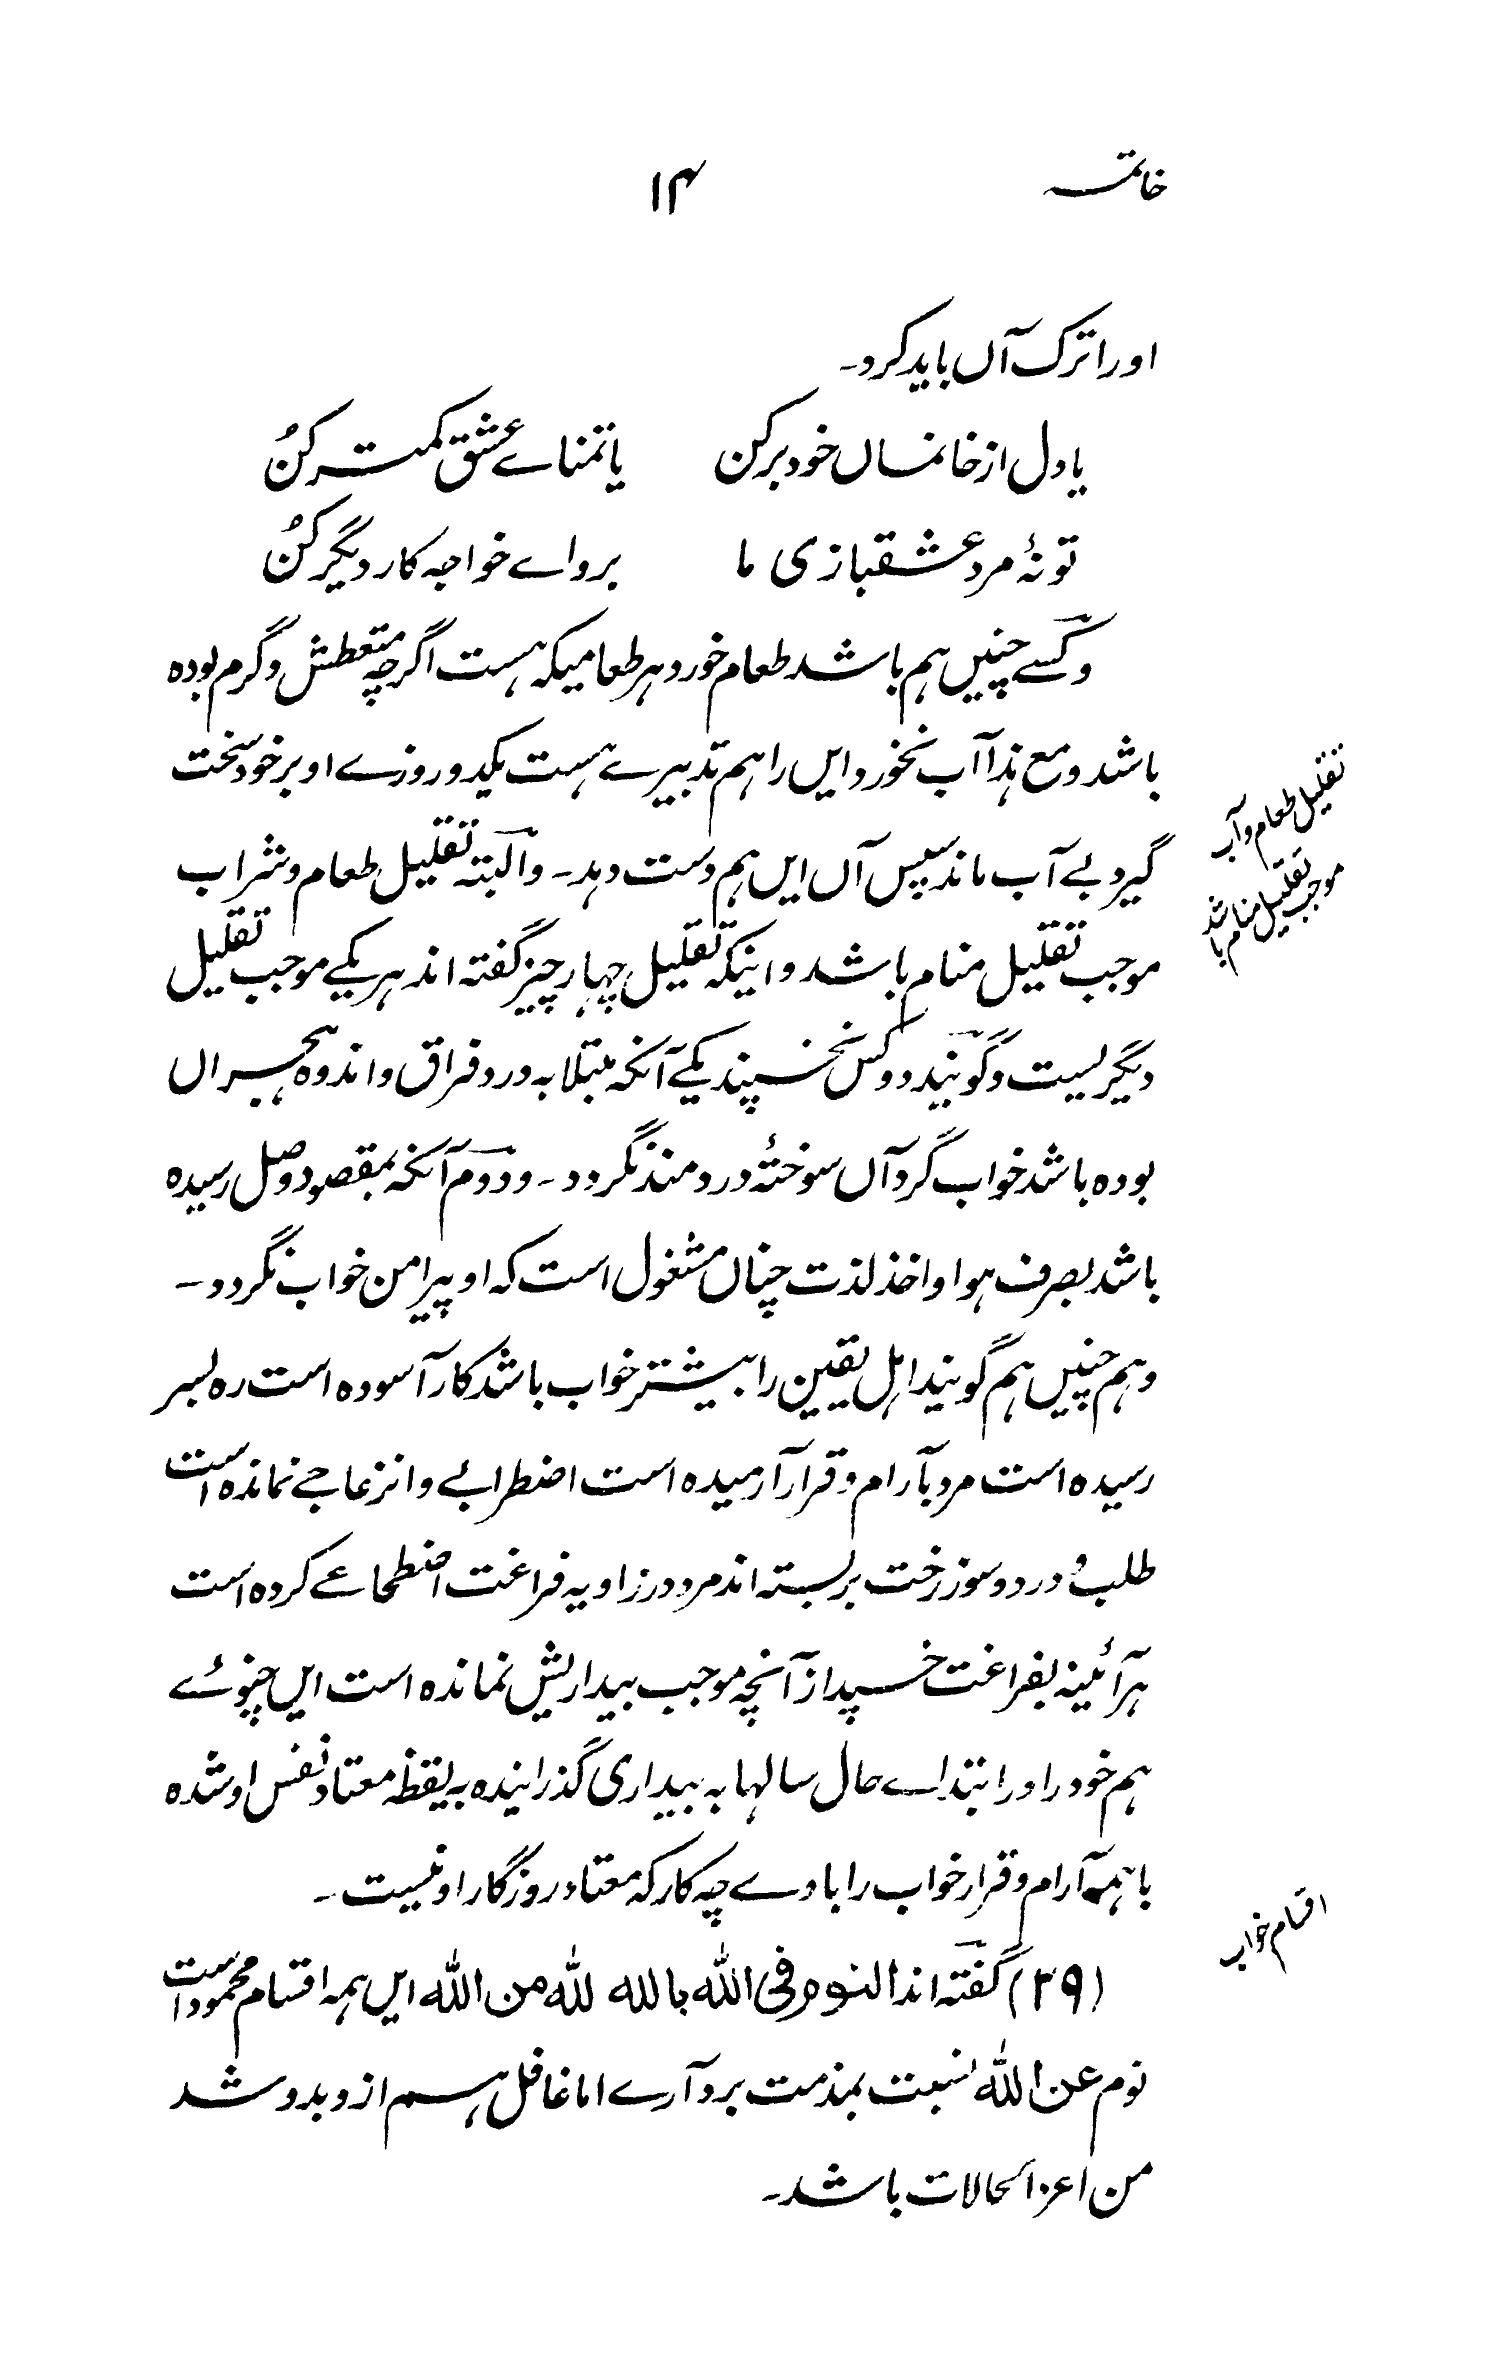 خاتمہ
۱۴
او را ترک آں باید کرد۔
یا دل از خانماں خود برکن یا تمنائے عشق کمتر کنُ
تو نۂ مرد عشقبازی ما برو اے خواجہ کار دیگر کنُ
و کسے چنیں ہم باشد طعام خورد ہر طعامیکہ ہست اگرچہ متعطش و گرم بودہ
باشد و مع ہذا آب نخورد ایں را ہم تدبیرے ہست یکدو روزے او بر خود سخت
گیرد بے آب ماند سپس آں ایں ہم دست دہد۔ و البتہ تقلیل طعام و شراب
موجب تقلیل منام باشد و اینکہ تقلیل چہار چیز گفتہ اند ہر یکے موجب تقلیل
دیگریست و گویند دو کس نخسپند یکے آنکہ مبتلا بہ درد فراق و اندوہ ہجراں
بودہ باشد خواب گرد آں سوختۂ دردمند نگردد۔ و دوم آنکہ بمقصود وصل رسیدہ
باشد بصرف ہوا و اخذ لذت چناں مشغول است کہ او پیرامن خواب نگردد۔
و ہم چنیں ہم گویند اہل یقین را بیشتر خواب باشد کار آسودہ است رہ بسر
رسیدہ است مرد بآرام و قرار آرمیدہ است اضطرابے و انزعاجے نماندہ است
طلب و درد و سوز رخت بربستہ اند مرد در زاویہ فراغت اضطجاعے کردہ است
ہر آئینہ بفراغت خسپد از آنچہ موجب بیداریش نماندہ است ایں چنوئے
ہم خود را در ابتداے حال سالہا بہ بیداری گذرانیدہ بہ یقظہ معتاد نفس او شدہ
با ہمہ آرام و قرار خواب را با وے چہ کار کہ معتاد روزگار او نیست۔
(۳۹) گفتہ اند النوم فی اللہ باللہ للہ من اللہ ایں ہمہ اقسام محمود است
نوم عن اللہ نسبت بمذمت برد آرے اما غافل ہم ازو بدو شد
من اعز الحالات باشد۔
تقلیل طعام و آب
موجب تقلیل منام باشد
اقسام خواب